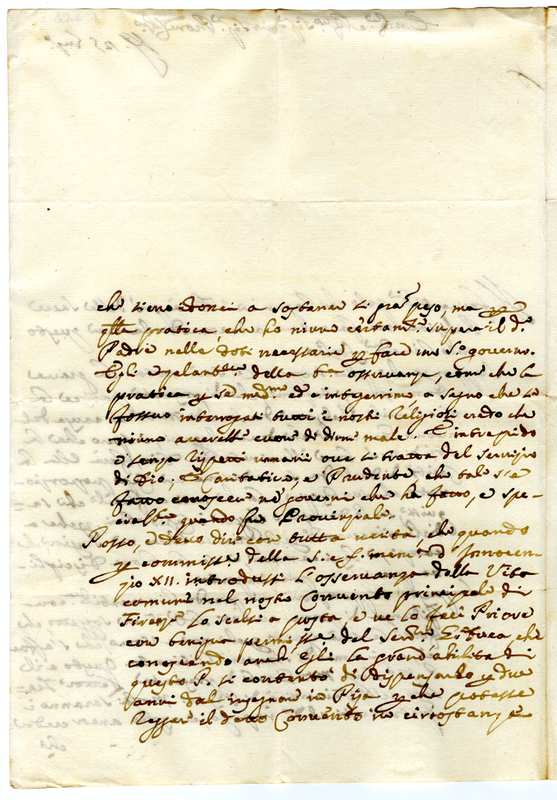 che sieno idonei a sostener sì gran peso, ma
pratica che ho niuno certam.te supera il d.o
Padre nelle doti necessarie per fare un S.o governo.
Egli è zelant.mo della osservanza, come che la
pratica per se med.mo ed è integerrimo a segno che se
fossero interrogati tutti i nostri Religiosi credo che
niuno averebbe cuore di dirne male. È intrepido
e senza rispetti umani ove si tratta del servizio
di Dio; è Caritativo, e Prudente che tale s'è
fatto conoscere ne' governi che ha fatto, e spe-
cialm.te quando fu Provinziale.
Posso, e devo dire con tutta verità, che quando
per commiss.e della S. e f. mem. d'Innocen-
zio XII. introdussi l'osservanza della Vita
comune nel nostro Convento principale di
Firenze lo scelsi a posta, e ve lo feci Priore
con benigna permiss.e del Seren.o G. Duca che
conoscendo anch'egli la grand'abilità di
questo P. si contentò di dispensarlo per due
anni dal insegnare in Pisa perché potesse
regger il detto Convento in circostanze